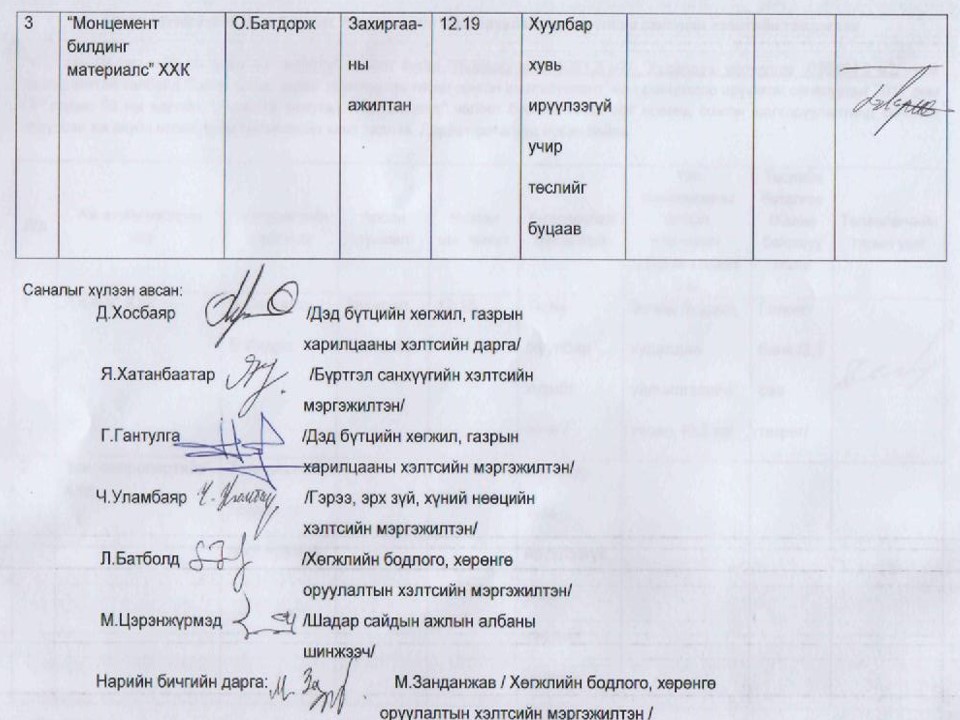 3 "Монцемент билдинг материалс" ХХК О.Батдорж Захиргаа-ны ажилтан 12.19 Хуулбар хувь ирүүлээгүй учир төслийг буцаав
Саналыг хүлээн авсан:
Д.Хосбаяр /Дэд бүтцийн хөгжил, газрын
харилцааны хэлтсийн дарга/
Я.Хатанбаатар /Бүртгэл санхүүгийн хэлтсийн
мэргэжилтэн/
Г.Гантулга /Дэд бүтцийн хөгжил, газрын
харилцааны хэлтсийн мэргэжилтэн/
Ч.Уламбаяр /Гэрээ, эрх зүй, хүний нөөцийн
хэлтсийн мэргэжилтэн/
Л.Батболд /Хөгжлийн бодлого, хөрөнгө
оруулалтын хэлтсийн мэргэжилтэн/
М.Цэрэнжүрмэд /Шадар сайдын ажлын албаны
шинжээч/
Нарийн бичгийн дарга: М.Занданжав / Хөгжлийн бодлого, хөрөнгө
оруулалтын хэлтсийн мэргэжилтэн /